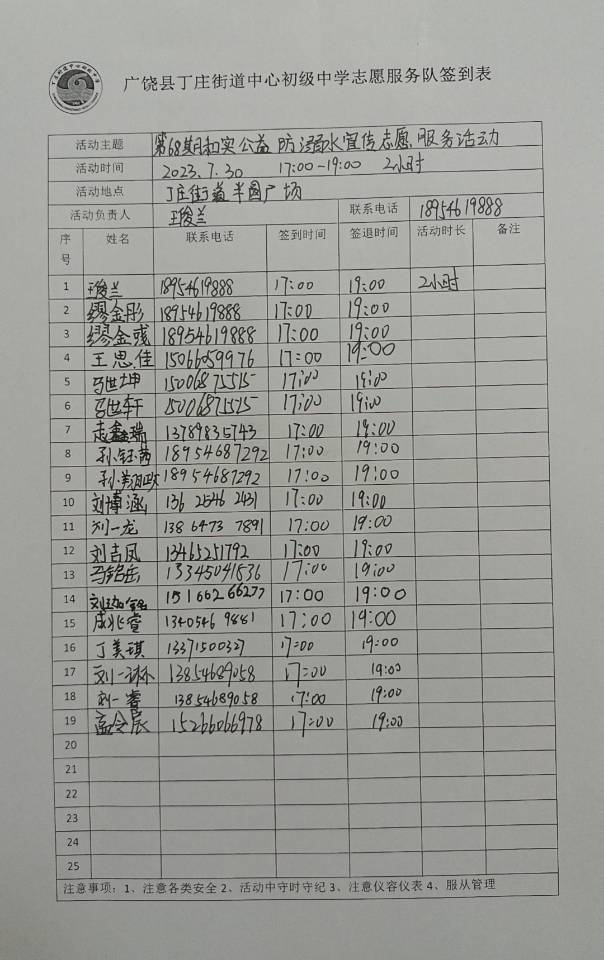 广饶县丁庄街道中心初级中学志愿服务队签到表
活动主题 第68期和实公益 防溺水宣传志愿服务活动
活动时间 2023.7.30 17:00-19:00 2小时
活动地点 丁庄街道半园广场
活动负责人 王俊兰 联系电话 18954619888
序号 姓名 联系电话 签到时间 签退时间 活动时长 备注
1 王俊兰 18954619888 17:00 19:00 2小时
2 缪金彤 18954619888 17:00 19:00
3 缪金彧 18954619888 17:00 19:00
4 王思佳 15066059976 17:00 19:00
5 马世坤 15006875515 17:00 19:00
6 马世轩 15006875515 17:00 19:00
7 志鑫瑞 13789835743 17:00 19:00
8 孙钰芮 18954687292 17:00 19:00
9 孙 18954687292 17:00 19:00
10 刘博涵 136 2546 2431 17:00 19:00
11 刘一龙 138 6473 7891 17:00 19:00
12 刘吉凤 13465251792 17:00 19:00
13 马铭岳 13345041536 17:00 19:00
14 刘 151662 66277 17:00 19:00
15 成兆睿 1340546 9881 17:00 19:00
16 丁美琪 13371500327 17:00 19:00
17 刘一琳 13854689058 17:00 19:00
18 刘一睿 13854689058 17:00 19:00
19 孟令辰 15266066978 17:00 19:00
20
21
22
23
24
25
注意事项：1、注意各类安全 2、活动中守时守纪 3、注意仪容仪表 4、服从管理